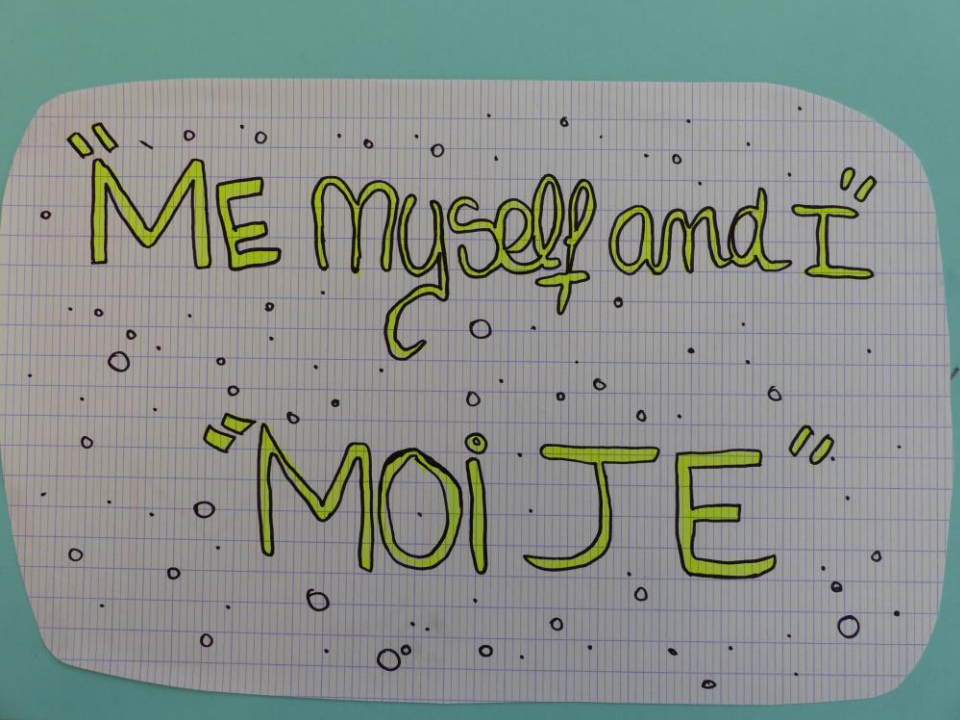 "ME myself and I"
"MOi JE"